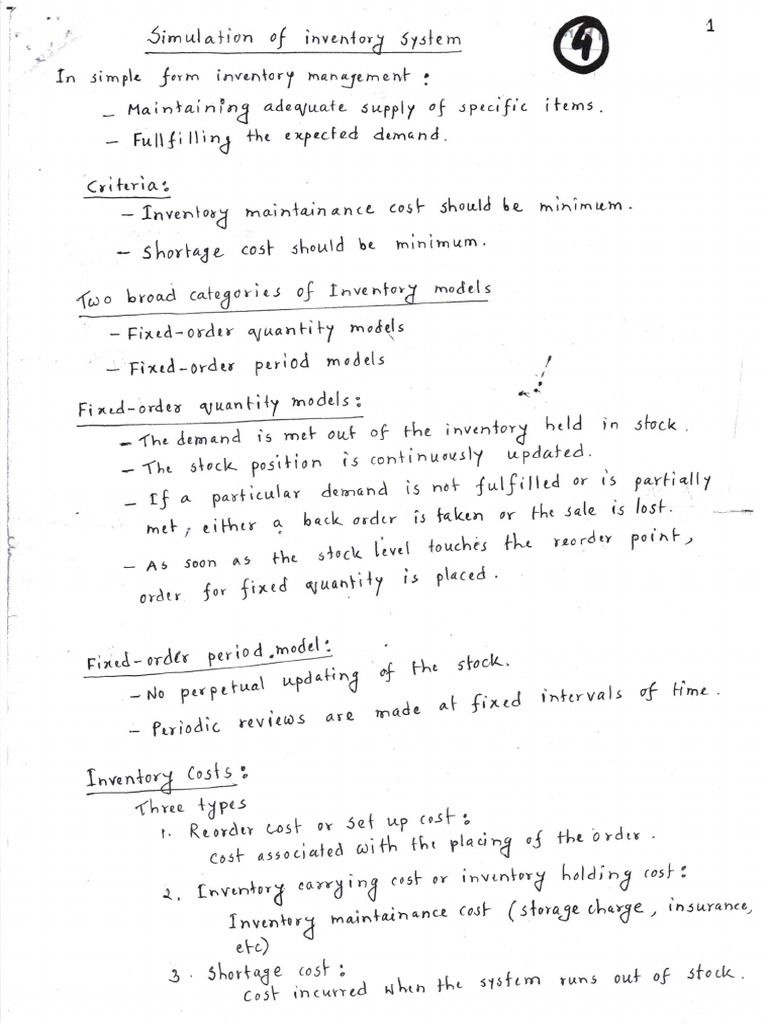 1
Simulation of inventory system
4
In simple form inventory management:
- Maintaining adequate supply of specific items.
- Fullfilling the expected demand.
Criteria:
- Inventory maintainance cost should be minimum.
- Shortage cost should be minimum.
Two broad categories of Inventory models
- Fixed-order quantity models
- Fixed-order period models
Fixed-order quantity models:
- The demand is met out of the inventory held in stock.
- The stock position is continuously updated.
- If a particular demand is not fulfilled or is partially
met, either a back order is taken or the sale is lost.
- As soon as the stock level touches the reorder point,
order for fixed quantity is placed.
Fixed-order period model:
- No perpetual updating of the stock.
- Periodic reviews are made at fixed intervals of time.
Inventory Costs:
Three types
1. Reorder cost or set up cost:
cost associated with the placing of the order.
2. Inventory carrying cost or inventory holding cost:
Inventory maintainance cost (storage charge, insurance,
etc)
3. Shortage cost:
cost incurred when the system runs out of stock.